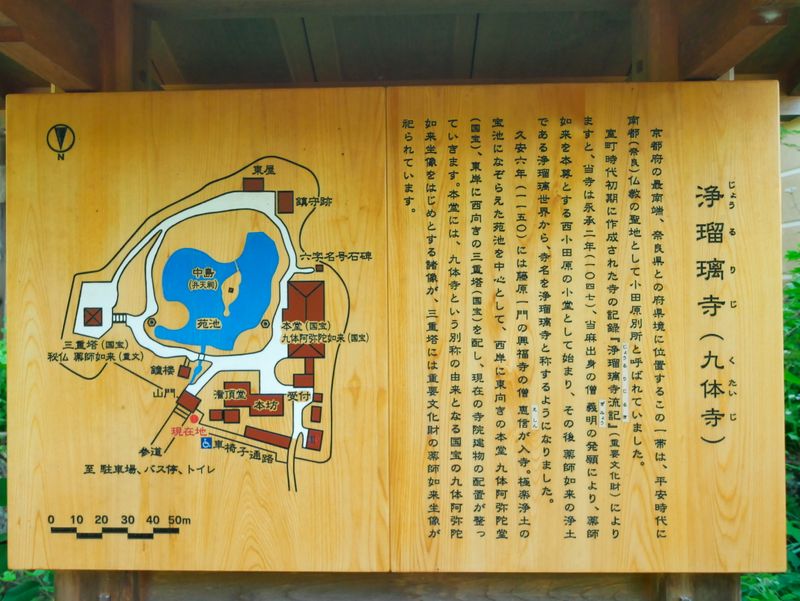 浄瑠璃寺(九体寺)
じょうるりじ
くたいじ
京都府の最南端、奈良県との府県境に位置するこの一帯は、平安時代に
南都(奈良)仏教の聖地として小田原別所と呼ばれていました。
室町時代初期に作成された寺の記録『浄瑠璃寺流記』(重要文化財)により
じょうるりじるき
ますと、当寺は永承二年(一〇四七)、当麻出身の僧 義明の発願により、薬師
ぎみょう
如来を本尊とする西小田原の小堂として始まり、その後 薬師如来の浄土
である浄瑠璃世界から、寺名を浄瑠璃寺と称するようになりました。
久安六年(一一五〇)には藤原一門の興福寺の僧 恵信が入寺。極楽浄土の
えしん
宝池になぞらえた苑池を中心として、西岸に東向きの本堂 九体阿弥陀堂
(国宝)、東岸に西向きの三重塔(国宝)を配し、現在の寺院建物の配置が整っ
ていきます。本堂には、九体寺という別称の由来となる国宝の九体阿弥陀
如来坐像をはじめとする諸像が、三重塔には重要文化財の薬師如来坐像が
祀られています。
N
東屋
鎮守跡
六字名号石碑
中島
(弁天祠)
苑池
本堂(国宝)
九体阿弥陀如来(国宝)
三重塔(国宝)
秘仏 薬師如来(重文)
鐘楼
山門
灌頂堂
本坊
受付
現在地
車椅子通路
参道
至 駐車場、バス停、トイレ
0 10 20 30 40 50m